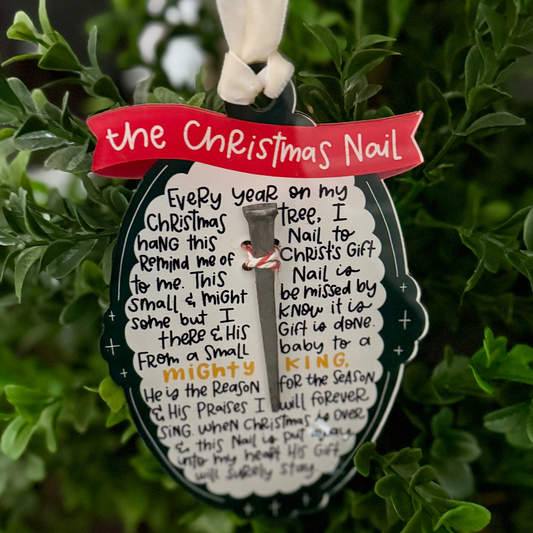 the Christmas Nail
Every year on my
Christmas tree, I
hang this Nail to
Remind me of Christ's Gift
to me. This Nail is
small & might be missed by
some but I know it is
there & His Gift is done.
From a small baby to a
mighty KING,
He is the Reason for the season
& His Praises I will forever
sing. When Christmas is over
& this Nail is put away
into my heart His Gift
will surely stay.